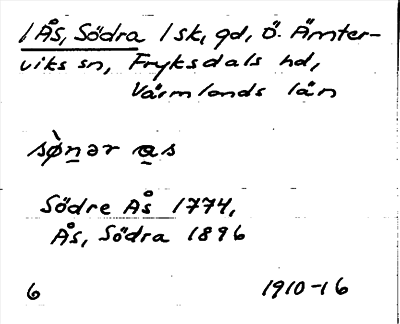 /Ås, Södra /sk, gd, Ö. Ämter-
viks sn, Fryksdals hd,
Värmlands län
sø̀nər as
Södre Ås 1774,
Ås, Södra 1896
6 1910-16